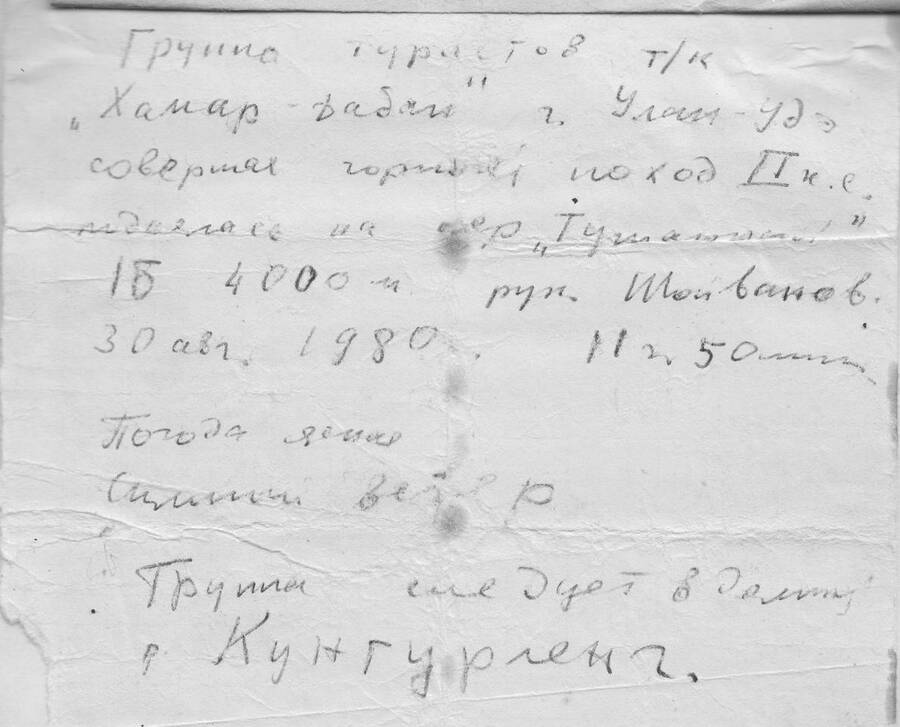 Группа туристов т/к
„Хамар-Дабан" г. Улан-Удэ
совершая горный поход II к.с.
поднялась на пер.
1Б 4000 м рук. Шойванов.
30 авг. 1980. 11 ч. 50 мин.
Погода ясная
Сильный ветер
Группа следует в долину
р Кунгурленг.